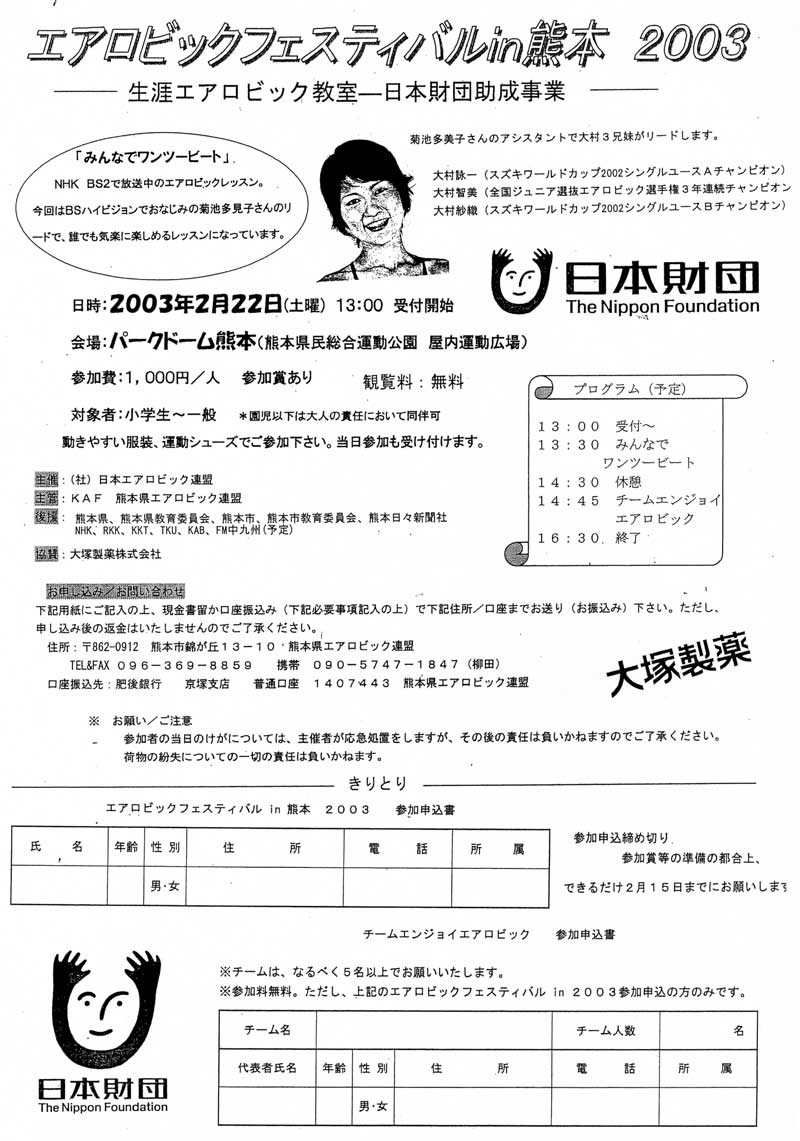 エアロビックフェスティバルin熊本 2003
生涯エアロビック教室―日本財団助成事業
菊池多美子さんのアシスタントで大村3兄妹がリードします。
「みんなでワンツービート」
NHK BS2で放送中のエアロビックレッスン。
今回はBSハイビジョンでおなじみの菊池多見子さんのリ
ードで、誰でも気楽に楽しめるレッスンになっています。
大村詠一(スズキワールドカップ2002シングルユースAチャンピオン)
大村智美(全国ジュニア選抜エアロビック選手権3年連続チャンピオン
大村紗織(スズキワールドカップ2002シングルユースBチャンピオン)
日本財団
The Nippon Foundation
日時:2003年2月22日(土曜) 13:00 受付開始
会場:パークドーム熊本(熊本県民総合運動公園 屋内運動広場)
参加費:1,000円/人 参加賞あり 観覧料:無料
対象者:小学生~一般 *園児以下は大人の責任において同伴可
動きやすい服装、運動シューズでご参加下さい。当日参加も受け付けます。
プログラム(予定)
13:00 受付~
13:30 みんなで
ワンツービート
14:30 休憩
14:45 チームエンジョイ
エアロビック
16:30 終了
主催:(社)日本エアロビック連盟
主管:KAF 熊本県エアロビック連盟
後援:熊本県、熊本県教育委員会、熊本市、熊本市教育委員会、熊本日々新聞社
NHK、RKK、KKT、TKU、KAB、FM中九州(予定)
協賛:大塚製薬株式会社
お申し込み/お問い合わせ
下記用紙にご記入の上、現金書留か口座振込み(下記必要事項記入の上)で下記住所/口座までお送り(お振込み)下さい。ただし、
申し込み後の返金はいたしませんのでご了承ください。
住所:〒862-0912 熊本市錦が丘13-10 熊本県エアロビック連盟
TEL&FAX 096-369-8859 携帯 090-5747-1847(柳田)
口座振込先:肥後銀行 京塚支店 普通口座 1407443 熊本県エアロビック連盟
大塚製薬
※ お願い/ご注意
参加者の当日のけがについては、主催者が応急処置をしますが、その後の責任は負いかねますのでご了承ください。
荷物の紛失についての一切の責任は負いかねます。
きりとり
エアロビックフェスティバル in 熊本 2003 参加申込書
氏 名 年齢 性別 住 所 電 話 所 属
男・女
参加申込締め切り
参加賞等の準備の都合上、
できるだけ2月15日までにお願いします
チームエンジョイエアロビック 参加申込書
※チームは、なるべく5名以上でお願いいたします。
※参加料無料。ただし、上記のエアロビックフェスティバル in 2003参加申込の方のみです。
チーム名 チーム人数 名
代表者氏名 年齢 性別 住 所 電 話 所 属
男・女
日本財団
The Nippon Foundation